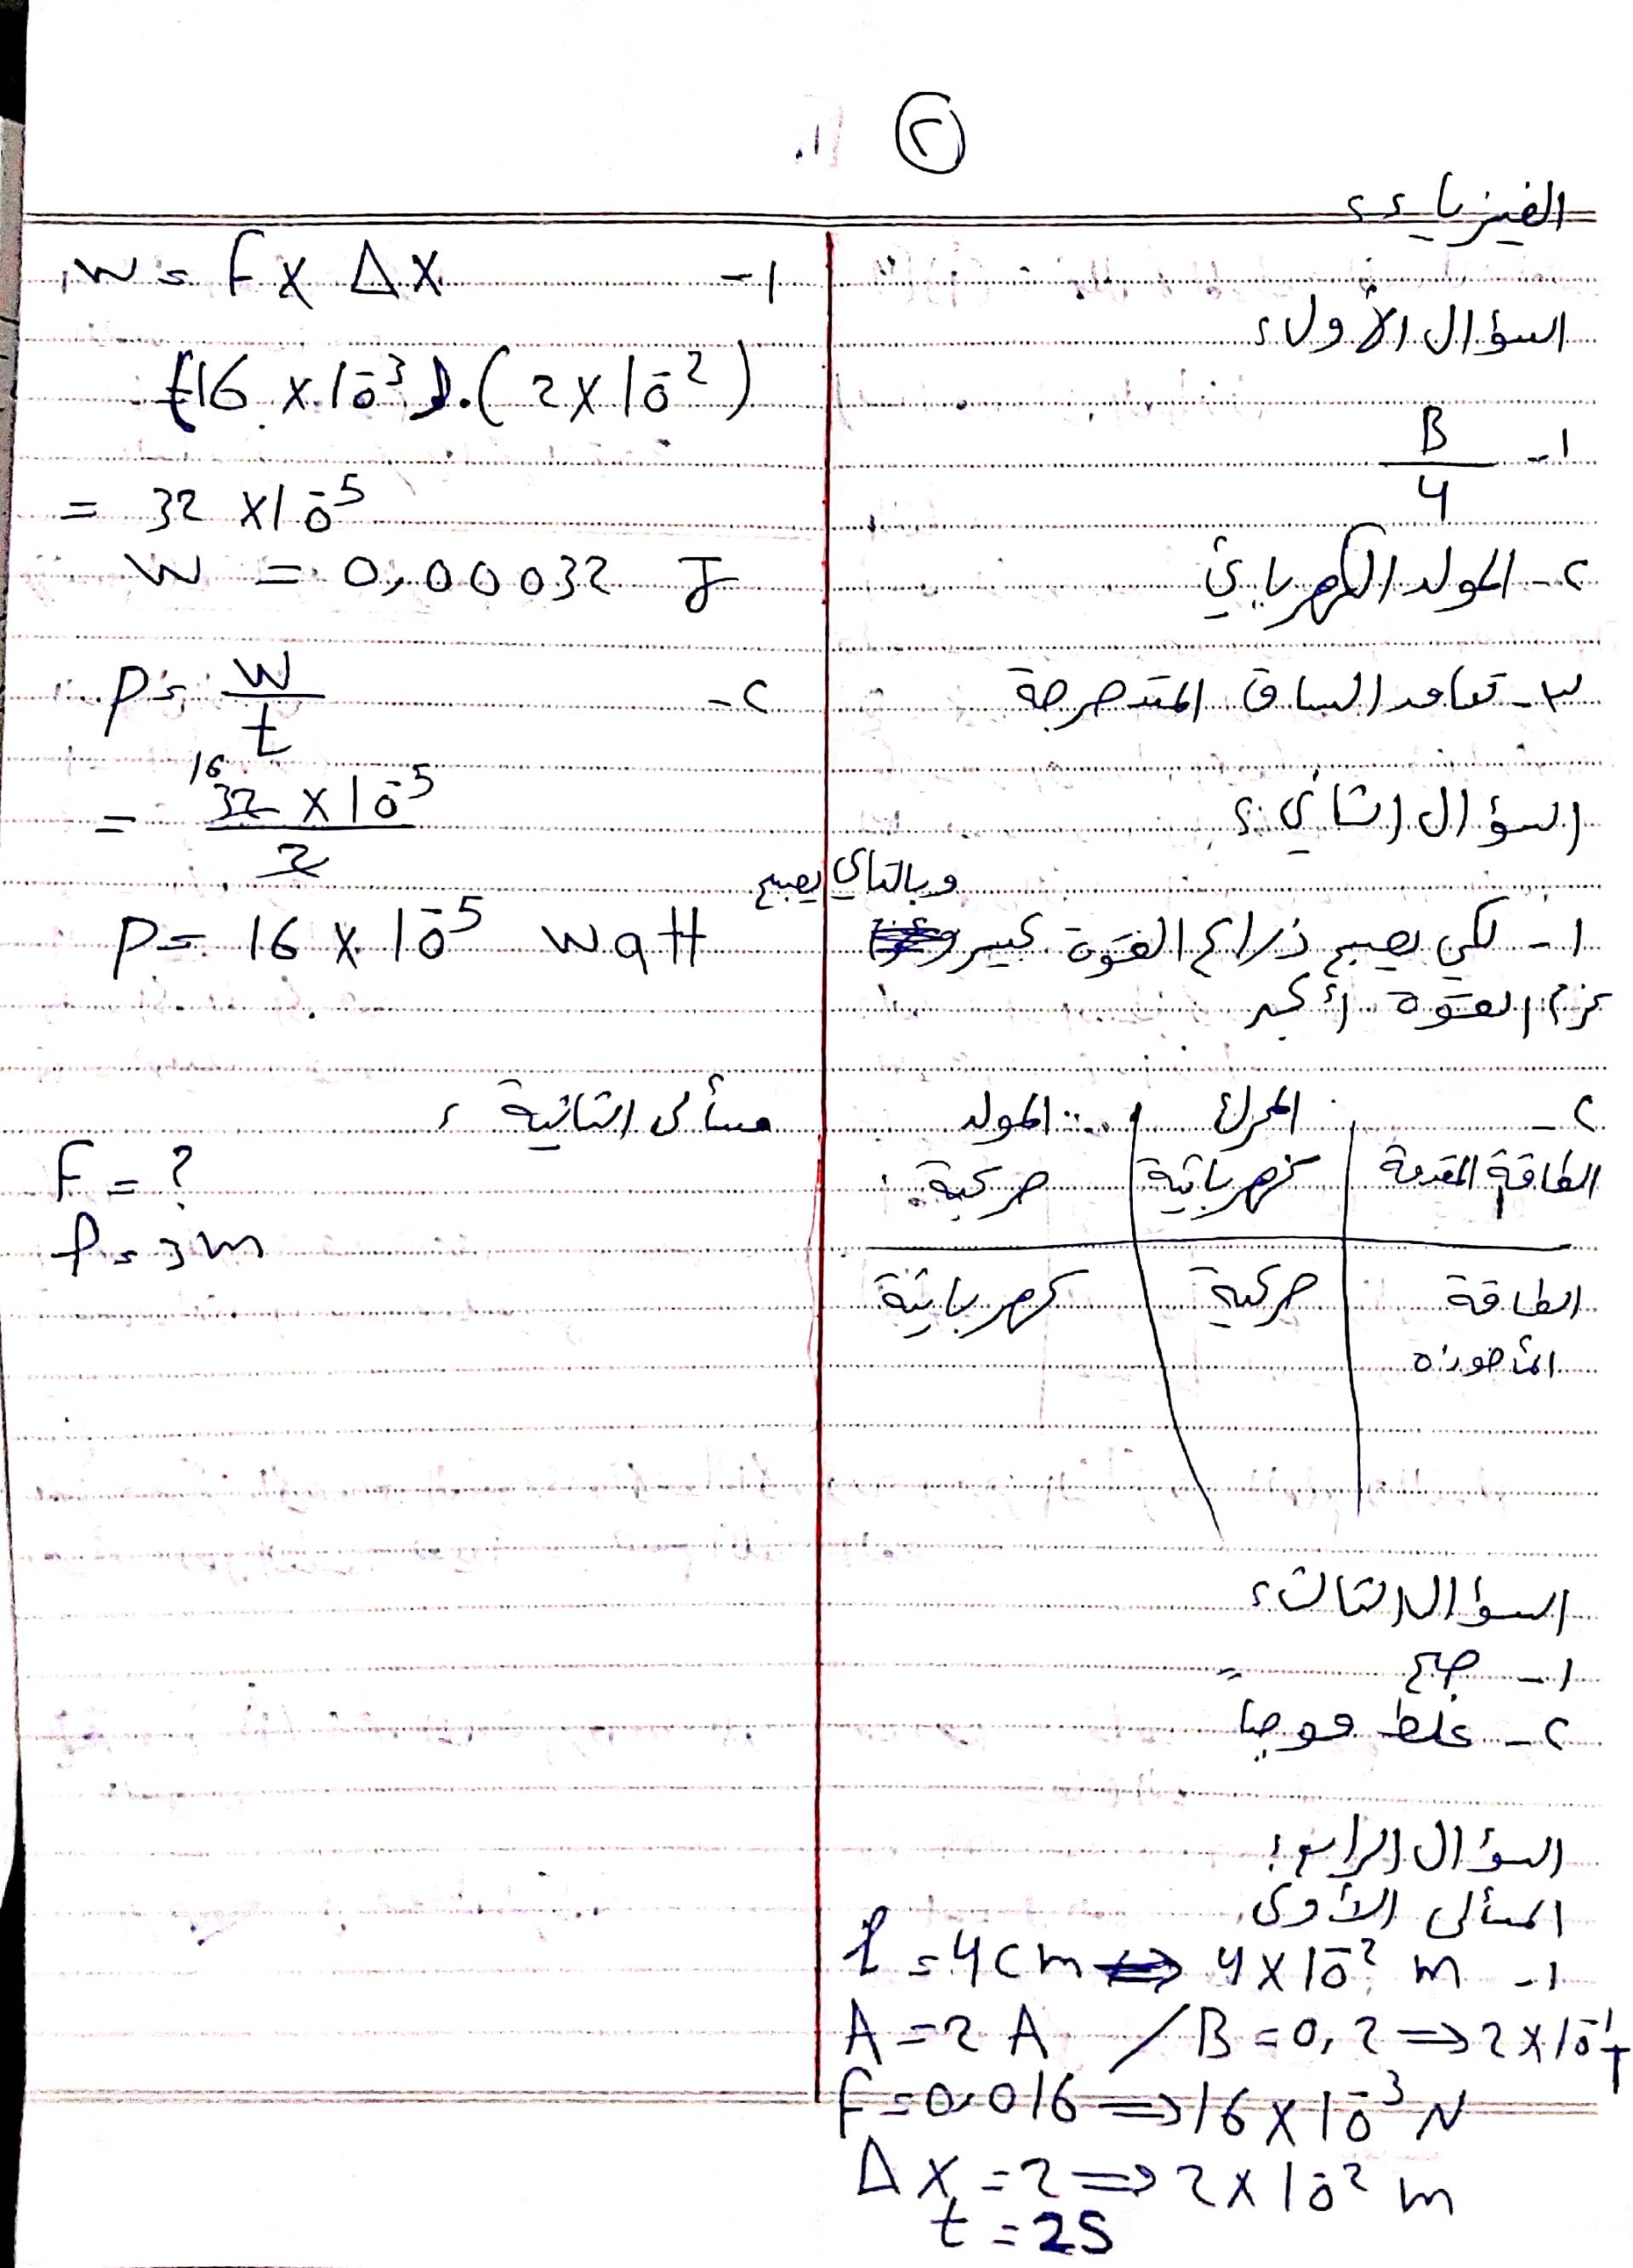 ٢
الفيزياء:
السؤال الأول:
١- B/4
٢- المولد الكهربائي
٣- تعامد الساق المتدحرجة
السؤال الثاني:
١- لكي يصبح ذراع القوة كبير وبالتالي يصبح
عزم القوة أكبر
٢- المحرك المولد
الطاقة المقدمة كهربائية حركية
الطاقة حركية كهربائية
المأخوذة
السؤال الثالث:
١- صح
٢- غلط موجباً
السؤال الرابع:
المسألى الأولى
١- l = 4cm ⇒ 4 x 10⁻² m
A = 2 A / B = 0,2 ⇒ 2 x 10⁻¹ T
F = 0,016 ⇒ 16 x 10⁻³ N
Δx = 2 ⇒ 2 x 10⁻² m
t = 2S
١- W = F x Δx
(16 x 10⁻³).(2 x 10⁻²)
= 32 x 10⁻⁵
W = 0,00032 J
٢- P = W/t
16
= 32 x 10⁻⁵/2
P = 16 x 10⁻⁵ watt
مسألى الثانية:
F = ?
l = 3m